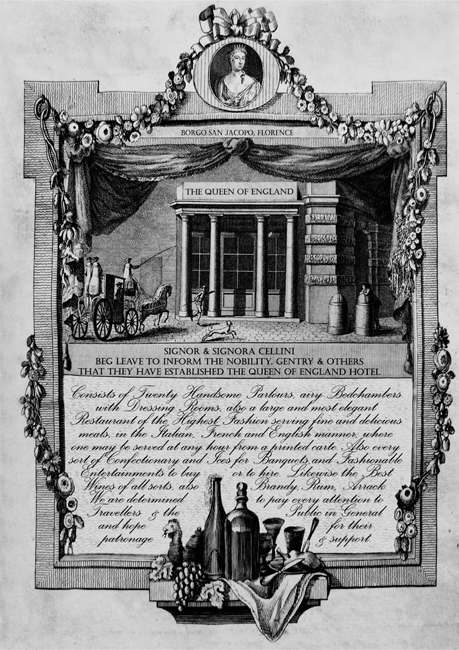 BORGO SAN JACOPO, FLORENCE
THE QUEEN OF ENGLAND
SIGNOR & SIGNORA CELLINI
BEG LEAVE TO INFORM THE NOBILITY, GENTRY & OTHERS
THAT THEY HAVE ESTABLISHED THE QUEEN OF ENGLAND HOTEL
Consists of Twenty Handsome Parlours, airy Bedchambers
with Dressing Rooms, also a large and most elegant
Restaurant of the Highest Fashion serving fine and delicious
meals, in the Italian, French and English manner, where
one may be served at any hour from a printed carte. Also every
sort of Confectionary and Ices for Banquets and Fashionable
Entertainments to buy or to hire. Likewise the Best
Wines of all sorts, also Brandy, Rum, Arrack
We are determined to pay every attention to
Travellers & the Public in General
and hope for their
patronage & support